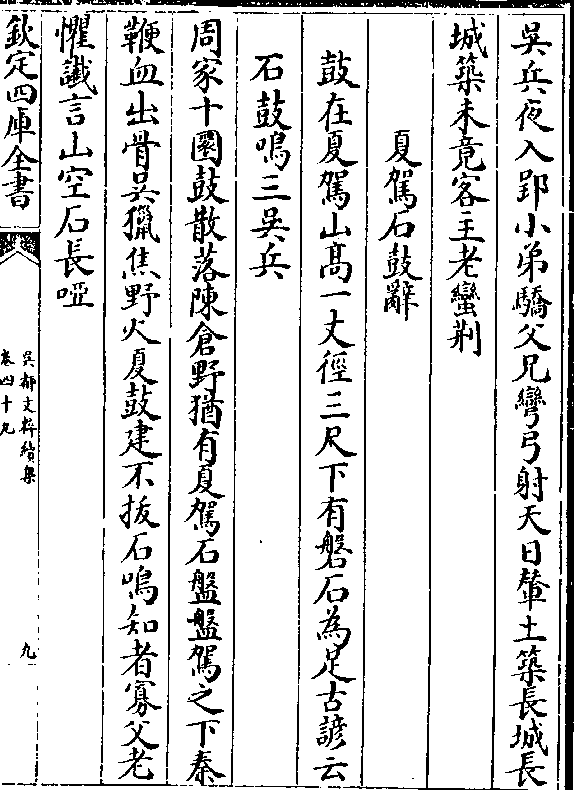 吳兵夜入郢小弟驕父兄彎弓射天日輦土築長城長
城築未竟客主老蠻荆
夏駕石鼓辭
鼓在夏駕山髙一丈徑三尺下有磐石為足古諺云
石鼓鳴三吳兵
周家十圍鼓散落陳倉野猶有夏駕石盤盤駕之下秦
鞭血出骨吳獵焦野火夏鼓建不拔石鳴知者寡父老
懼讖言山空石長啞
欽定四庫全書
吳都文粹續集
卷四十九
九